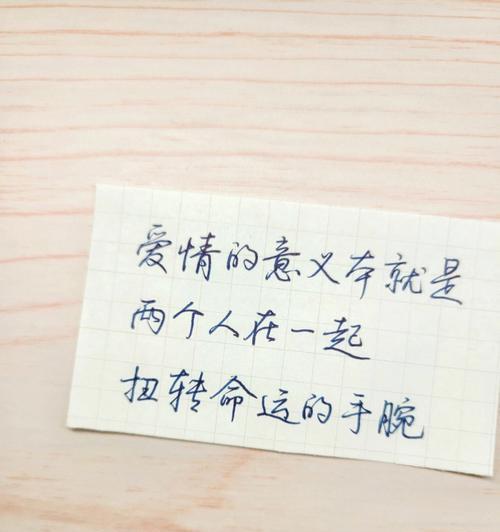 爱情的意义本就是
两个人在一起
扭转命运的手腕